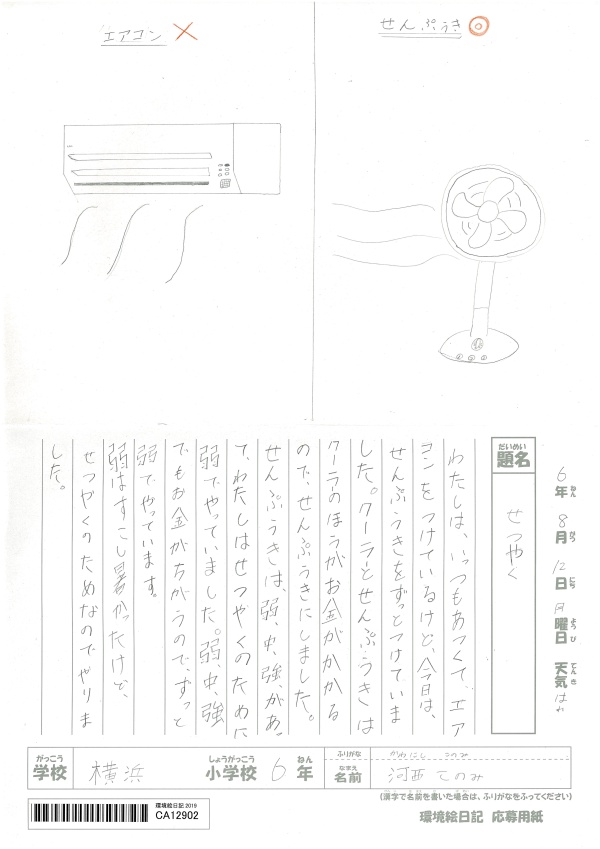 エアコン ×
せんぷうき ◎
6年 8月 12日 月曜日 天気 はれ
ねん がつ にち ようび てんき
だいめい
題名 せつやく
わたしは、いつもあつくて、エア
コンをつけているけど、今日は、
せんぷうきをずっとつけていま
した。クーラーとせんぷうきは
クーラのほうがお金がかかる
ので、せんぷうきにしました。
せんぷうきは、弱、中、強があっ
て、わたしはせつやくのために
弱でやっていました。弱、中、強
でもお金がちがうので、ずっと
弱でやっています。
弱はすこし暑かったけど、
せつやくのためなのでやりま
した。
がっこう
学校 横浜
しょうがっこう ねん
小学校 6年
ふりがな かわにし このみ
なまえ
名前 河西 このみ
(漢字で名前を書いた場合は、ふりがなをふってください)
環境絵日記2019
CA12902
環境絵日記 応募用紙